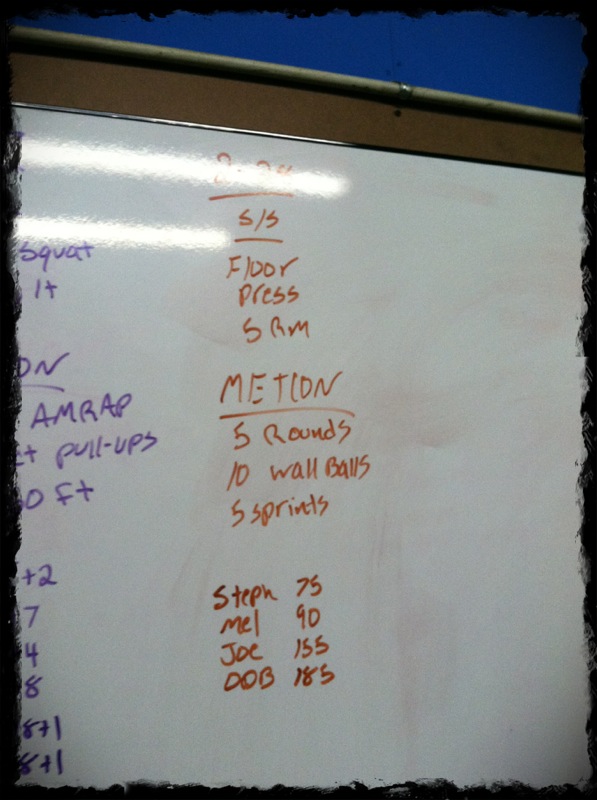 squat
AMRAP
pull-ups
0 ft
+2
7
4
8
8+1
8+1
S/S
Floor
press
5 Rm
METCON
5 Rounds
10 wall Balls
5 sprints
Steph 75
mel 90
Joe 155
DOB 185